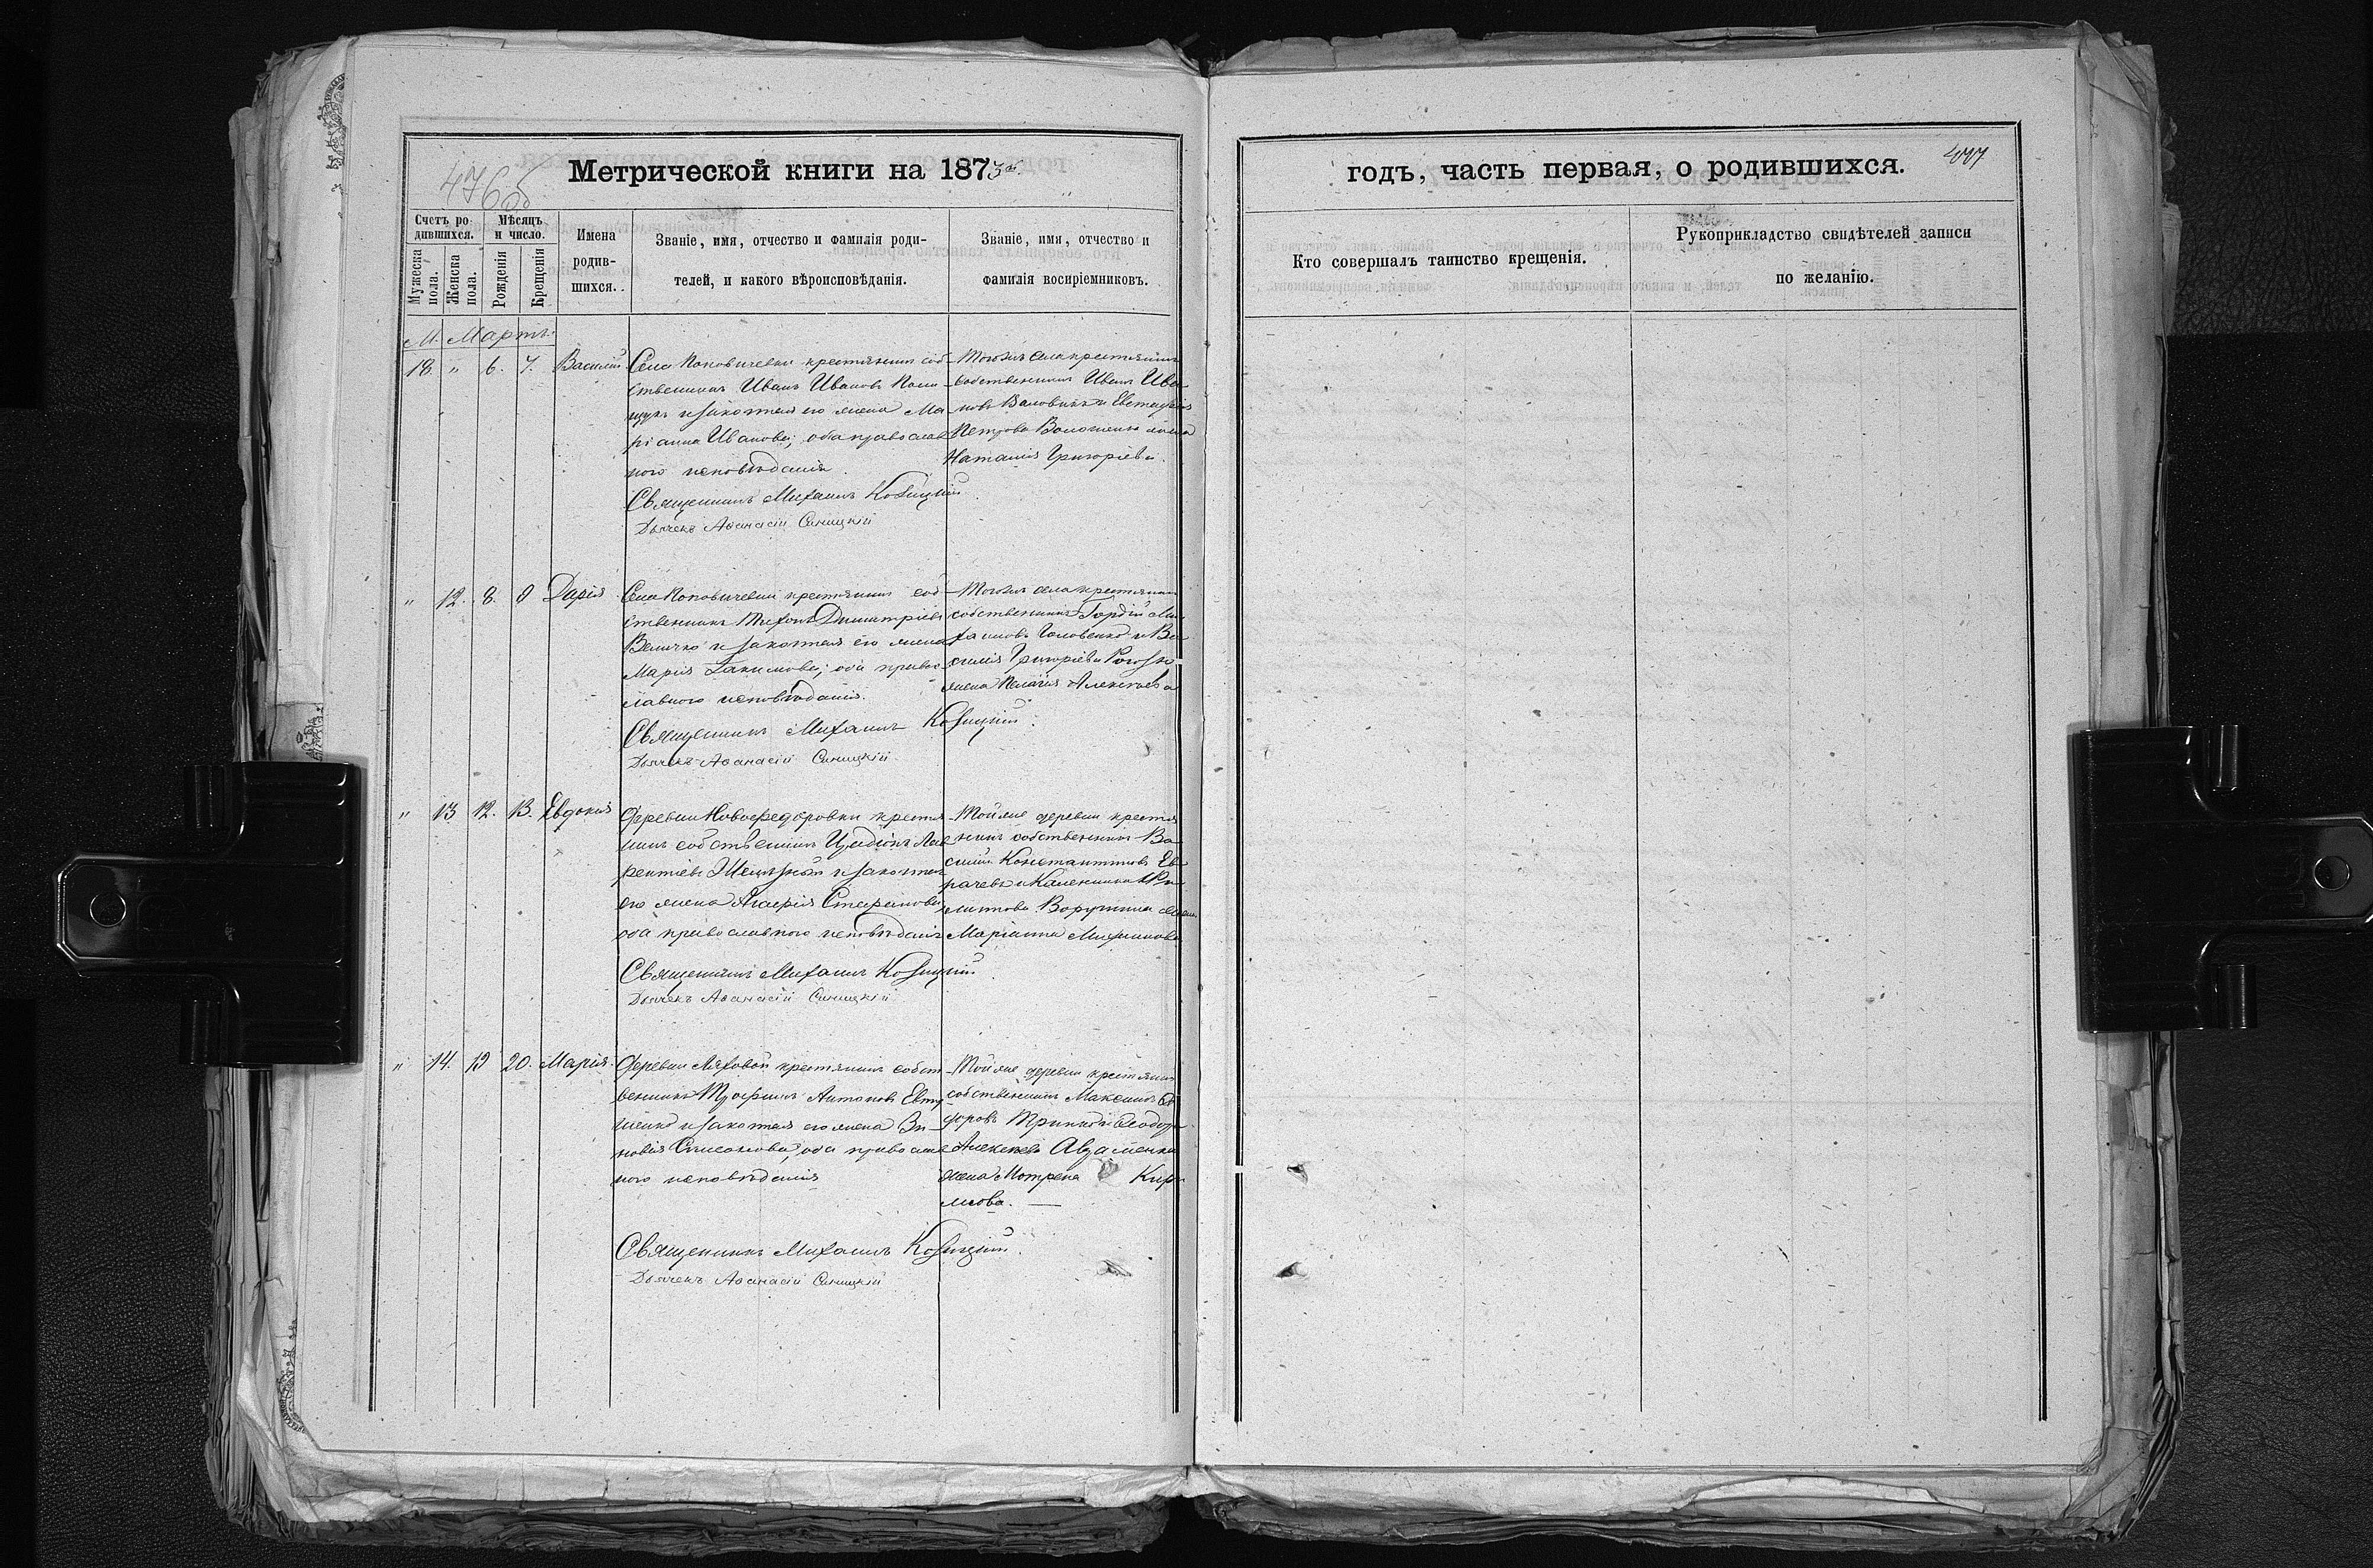 476 об
Метрической книги на 1873й
Счетъ ро-
дившихся.
Мѣсяцъ
и число.
Мужеска
пола.
Женска
пола.
Рожденія
Крещенія
Имена
родив-
шихся.
Званіе, имя, отчество и фамилія роди-
телей, и какого вѣроисповѣданія.
Званіе, имя, отчество и
фамилія воспріемниковъ.
М. Мартъ.
18. " 6. 7. Василій
Села Поповичевки крестьянинъ соб-
ственникъ Иванъ Ивановъ
и законная его жена Ма-
ріанна Иванова; оба православ
ного исповѣданія.
Священникъ Михаилъ Козицкій
Дьячекъ Аѳанасій Синицкій
Тогожъ села крестьянинъ
собственникъ Иванъ Ива-
новъ и Евстафія
Петрова Волошенко жена
Наталія Григоріева.
" 12. 8. 8 Дарія
Села Поповичевки крестьянинъ соб-
ственникъ Тихонъ Димитріевъ
Величко и законная его жена
Марія Іакимова; оба право-
славного исповѣданія.
Священникъ Михаилъ Козицкій.
Дьячекъ Аѳанасій Синицкій
Тогожъ села крестьянинъ
собственникъ Гордій Ми-
хаиловъ Головенко и Ва-
силія Григоріева Рогозы
жена Пелагія Алексѣева
" 13 12. 13. Евдокія
Деревни Новофедоровки крестья
нинъ собственникъ Лав
рентіевъ и законная
его жена Агафія Стефанова,
оба православного исповѣданія
Священникъ Михаилъ Козицкій
Дьячекъ Аѳанасій Синицкій
Тойже деревни крестья
нинъ собственникъ Ва
силій Константиновъ
и
жена
Маріанна
" 14. 19 20. Марія.
Деревни Ляховой крестьянинъ собст
венникъ Трофимъ Антоновъ Евту
шенко и законная его жена Зи-
новія Симеонова, оба православ
ного исповѣданія
Священникъ Михаилъ Козицкій.
Дьячекъ Аѳанасій Синицкій
Тойже деревни крестьянинъ
собственникъ Максимъ Ѳе
доровъ и Ѳеодора
Алексѣева
жена Мотрена Кири
лова. —
годъ, часть первая, о родившихся.
477
Кто совершалъ таинство крещенія.
Рукоприкладство свидѣтелей записи
по желанію.